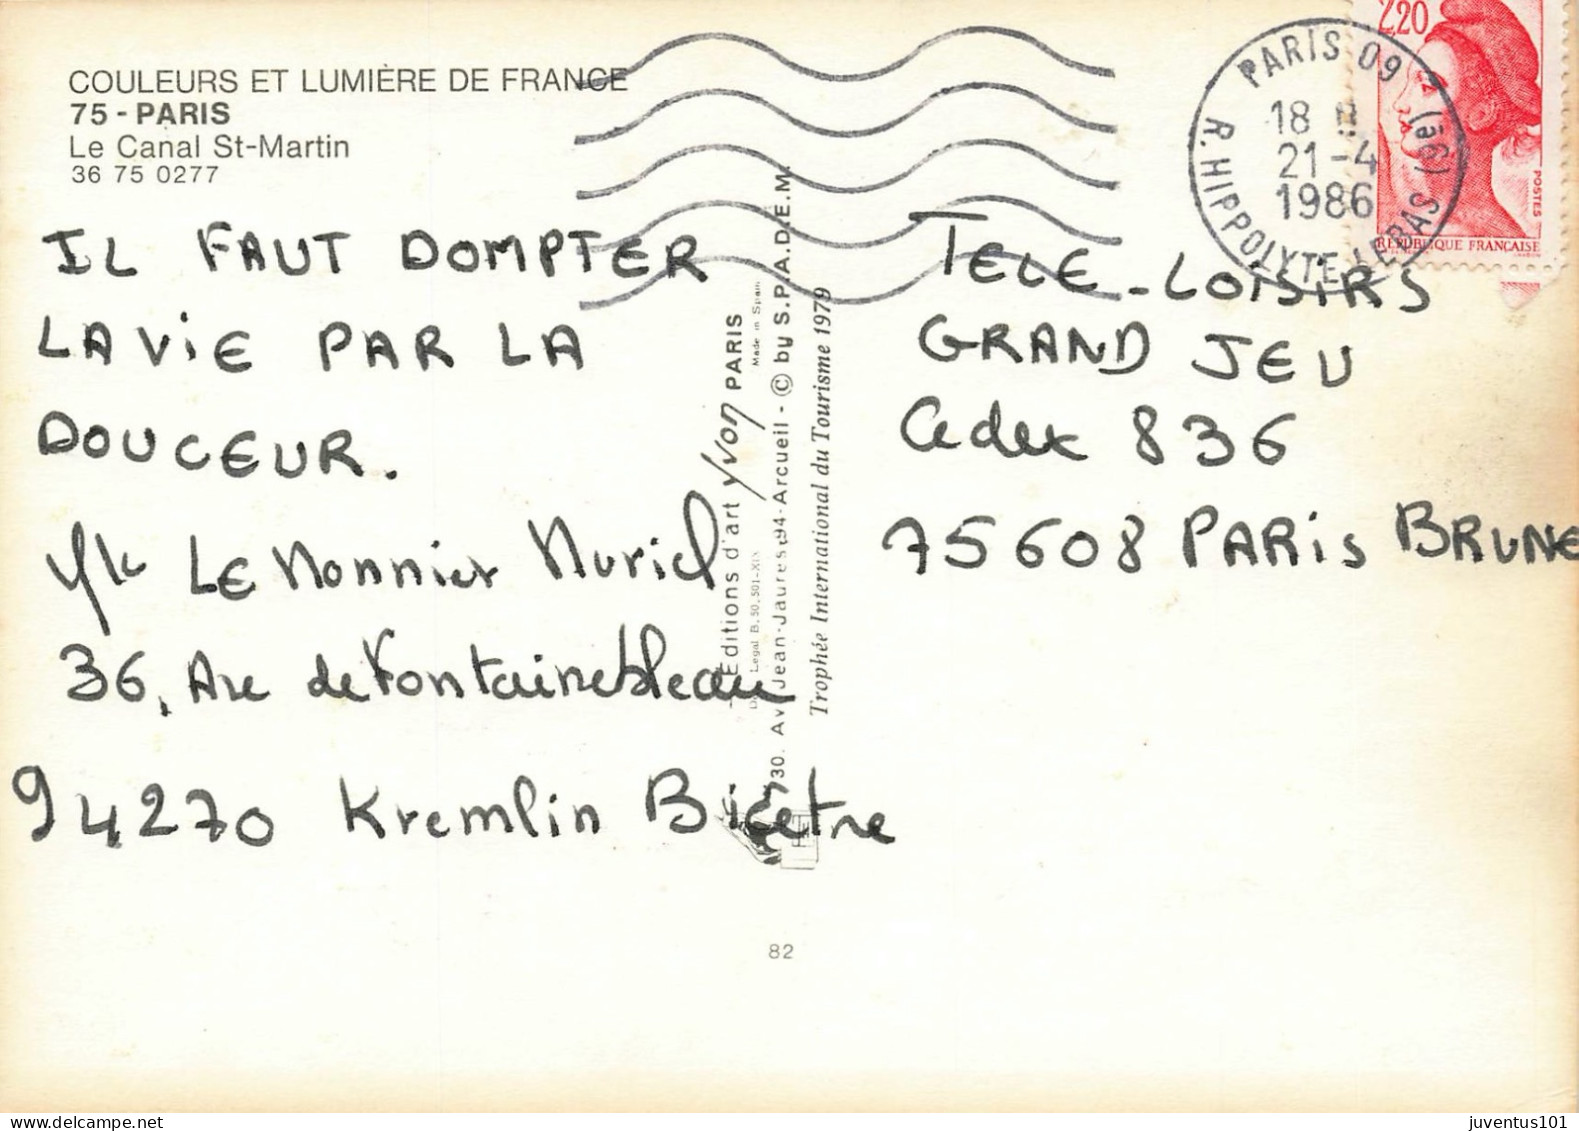 COULEURS ET LUMIÈRE DE FRANCE
75 - PARIS
Le Canal St-Martin
36 75 0277
IL FAUT DOMPTER
LA VIE PAR LA
DOUCEUR.
LE Monnier Muriel
36, Ave de Fontainebleau
94270 Kremlin Bicetre
Editions d'art Yvon PARIS
Made in Spain
30. Av. Jean-Jaures-94-Arcueil - © by S.P.A.D.E.M.
Trophée International du Tourisme 1979
82
2,20
POSTES
REPUBLIQUE FRANÇAISE
PARIS 09
18 H
21-4
1986
R. HIPPOLYTE LEBAS (9e)
TELE-LOISIRS
GRAND JEU
Cedex 836
75608 PARIS BRUNE
juventus101